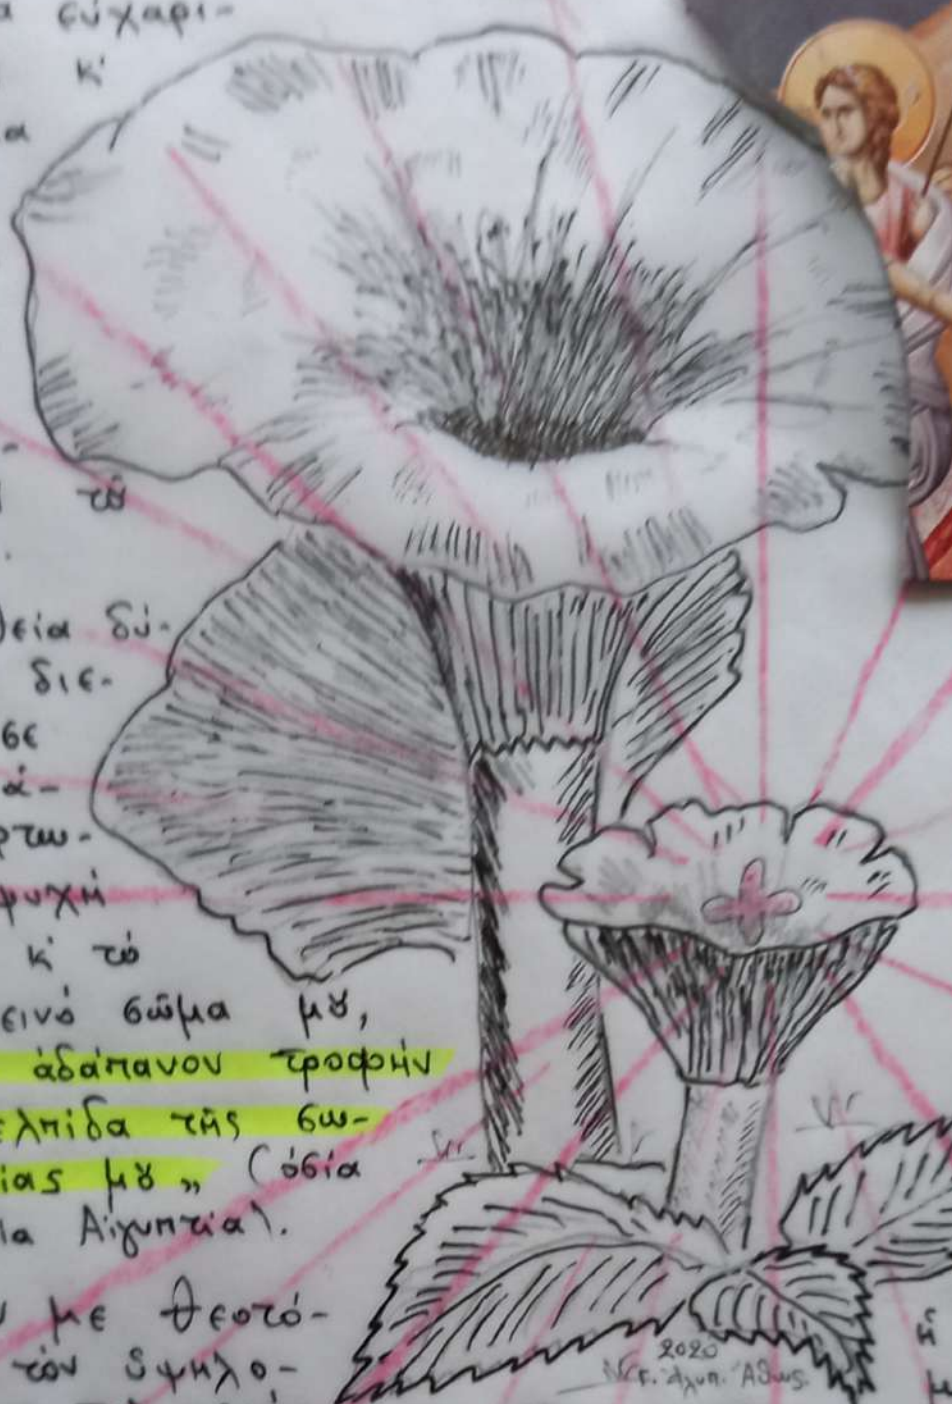 εὐχαρι-
κ'
α
τȣ͂
εία δύ-
διε-
σε
ά-
ρτω-
ψυχή
κ' τό
εινό σῶμα μȣ,
ἀδάπανον τροφήν
ελπίδα τῆς σω-
ίας μȣ„ (ὁσία
ία Αἰγυπτία).
με Θεοτό-
τόν ὑψηλο-
2020
Ἄθως